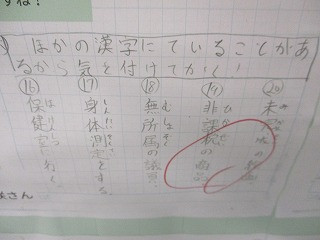 すね!
ほかの漢字にていることがあ
るから気を付けてかく!
⑯ 保健室に行く。
⑰ 身体測定をする。
⑱ 無所属の議員
⑲ 非課税の商品
⑳ 未
さん